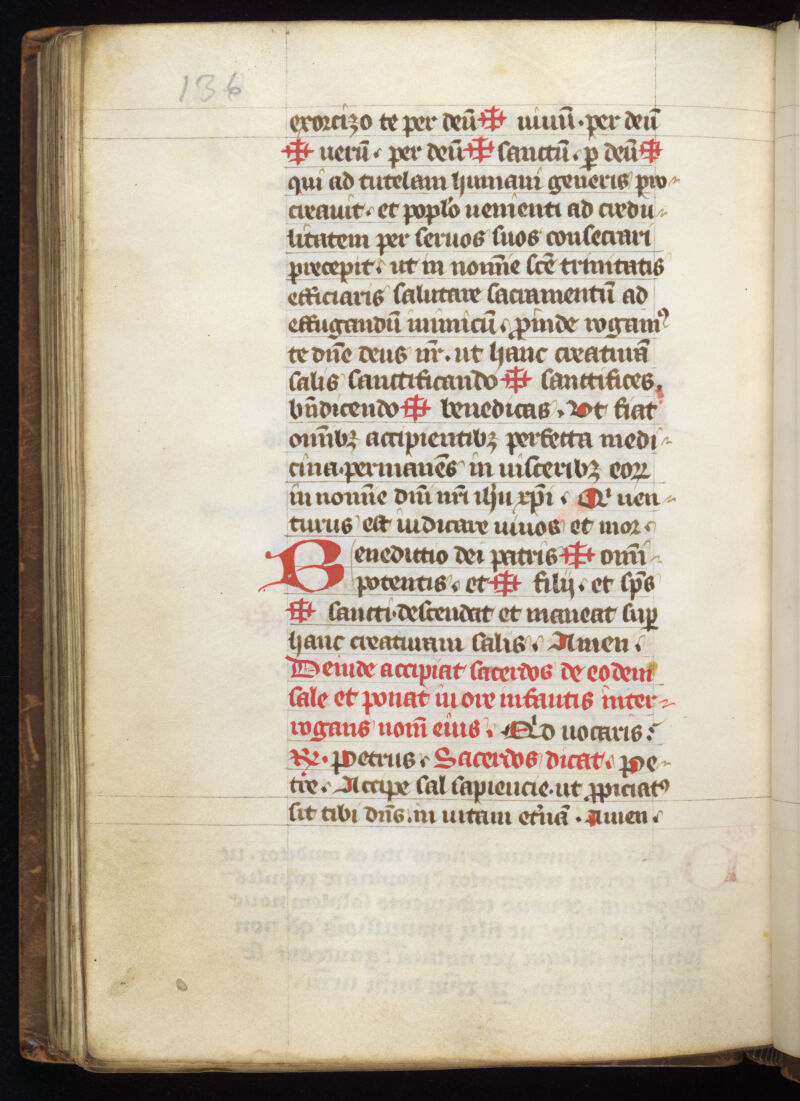 136
exorcizo te per deū ✠ uiuū · per deū
✠ uerū · per deū ✠ sanctū · p̲ deū ✠
qui ad tutelam humani generis pro-
creauit · et poplo uenienti ad credu-
litatem per seruos suos consecrari
precepit · ut in nomīe scē trinitatis
efficiaris salutare sacramentū ad
effugandū inimicū · ꝓinde rogamꝰ
te dn̄e deus nr̄ · ut hanc creaturā
salis sanctificando ✠ sanctifices ·
bn̄dicendo ✠ benedicas · Vt fiat
om̄ibꝫ accipientibꝫ perfecta medi-
cina · permanēs in uisceribꝫ eoꝝ
in nomīe dn̄i nr̄i ih̄u xp̄i · Qͥ uen-
turus est iudicare uiuos et mor ·
Benedictio dei patris ✠ om̄i-
potentis · et ✠ filij · et sp̄s
✠ sancti · descendat et maneat suꝑ
hanc creaturam salis · Amen ·
Deinde accipiat sacerdos de eodem
sale et ponat in ore infantis inter-
rogans nom̄ eius · Qͩo uocaris ?
℞ · Petrus · Sacerdos dicat · Pe-
tre · Accipe sal sapiencie · ut ꝓpiciatꝰ
sit tibi dn̄s · in uitam et̄nā · Amen ·